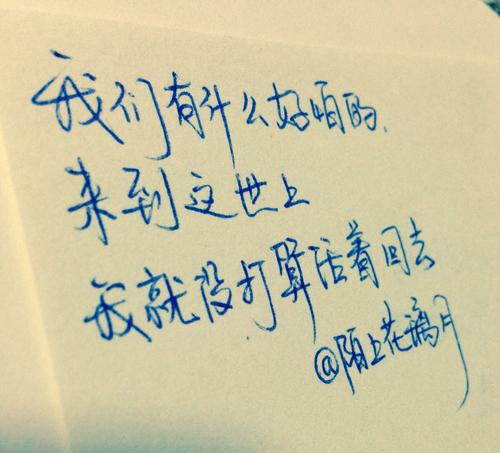 我们有什么好怕的.
来到这世上
我就没打算活着回去
@陌上花漓月